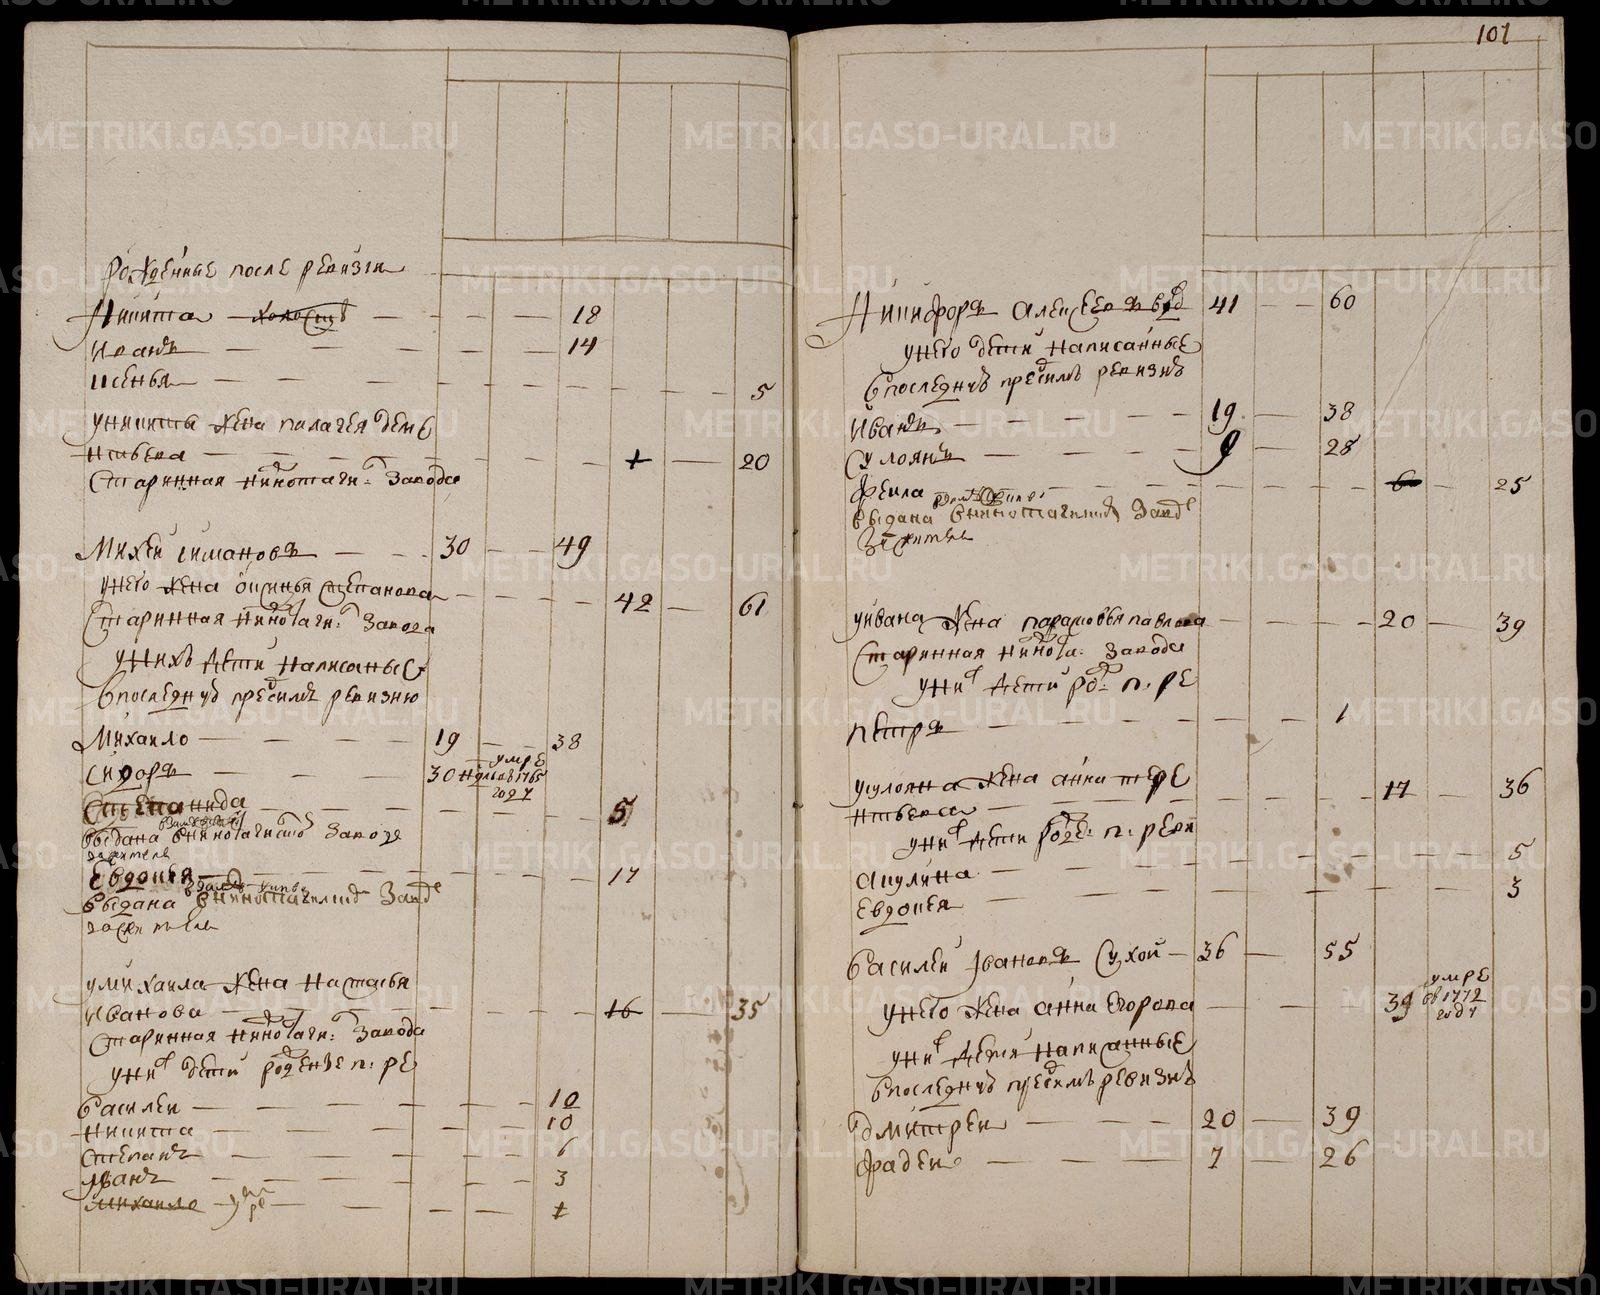 Рожденные после ревизии
Никита холостъ 18
Иванъ 14
Ксенья 5
У Никиты жена Палагея Деме
нтьева 20
Старинная Нижнотаги: завода
Михей Симановъ 30 49
У него жена Оксинья Степанова 42 61
Старинная Нижнотаги: завода
У нихъ дети написаные
в последную пред симъ ревизию
Михаило 19 38
Сидоръ 30 умре в 1765 году
Степанида 5
выдана в Нижнотагилской заводе
за жителя
Евдокья 17
выдана в Нижнотагилской заводе
за жителя
У Михаила жена Наталья
Иванова 16 35
Старинная Нижнотаги: завода
У них дети рожденые п: ре
Василеи 10
Никита 10
Степанъ 6
Иванъ 3
Михаило умре
101
Никифоръ Алексеевъ вдовъ 41 60
У него дети написанные
в последную пред симъ ревизию
Иванъ 19 38
Сулоянъ 9 28
Фекла 6 25
выдана в Нижнотагилской заводе
за жителя
У Ивана жена Парасковья Павлова 20 39
Старинная Нижнота: завода
У них дети ро: п: ре
Петръ 1
У Сулояна жена Анна Тере
нтьева 17 36
У них дети рожде: п: реви
Акулина 5
Евдокея 3
Василеи Ивановъ Сухой 36 55
У него жена Анна Егорова 39 умре в 1772 году
У них дети написанные
в последную пред симъ ревизию
Дмитреи 20 39
Фадеи 7 26
METRIKI.GASO-URAL.RU